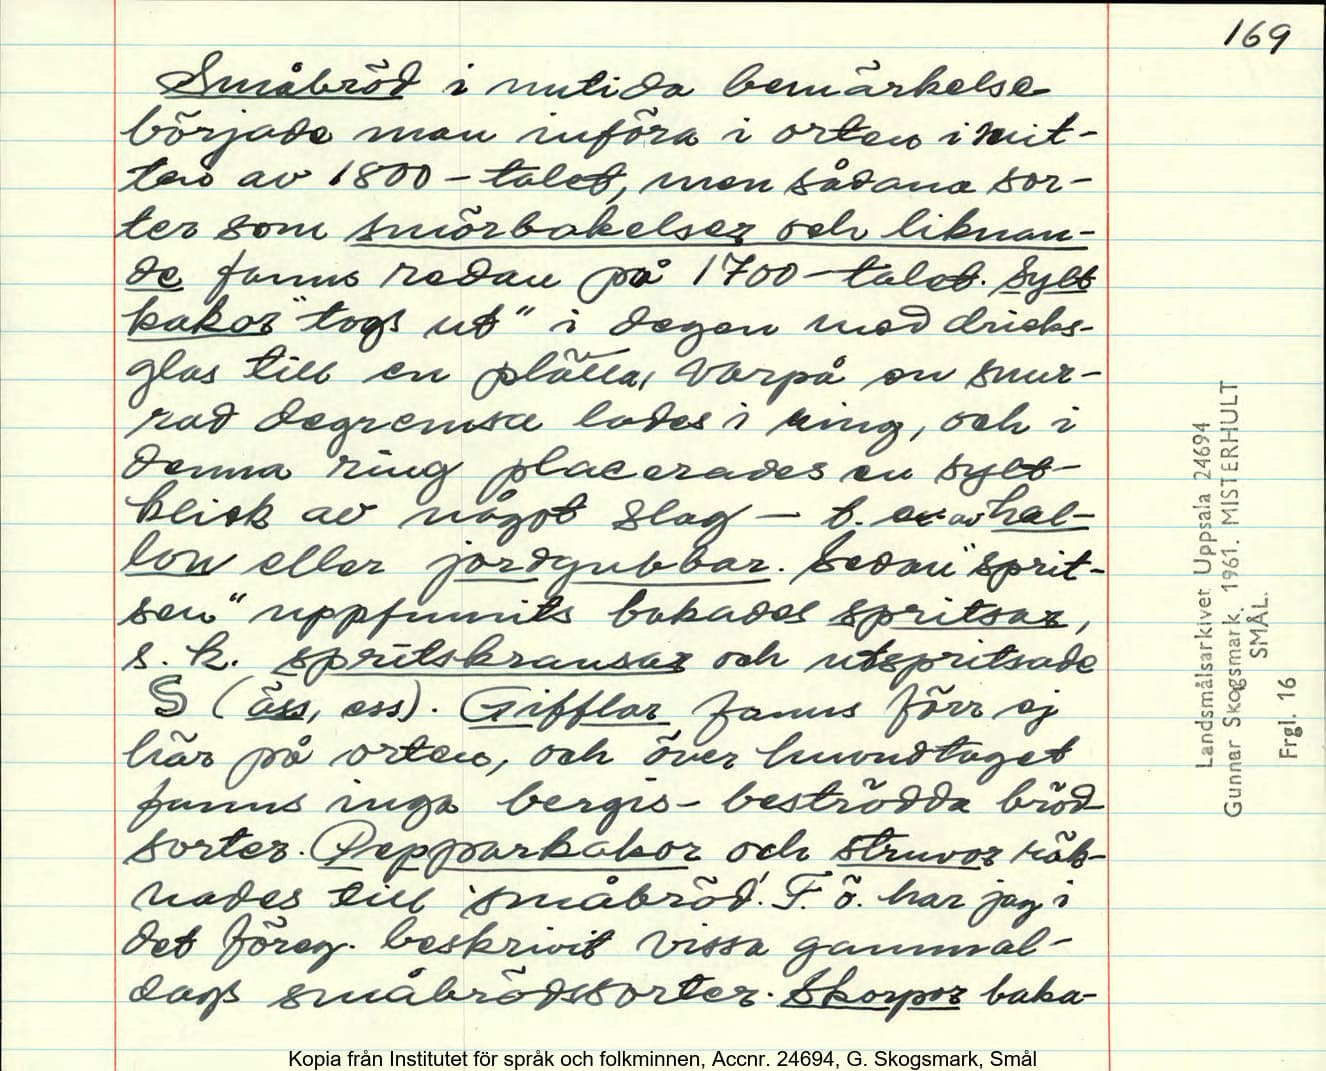 169
Småbröd i nutida bemärkelse
började man införa i orten i mit-
ten av 1800-talet, men sådana sor-
ter som smörbakelser och liknan-
de fanns redan på 1700-talet. Sylt
kakor "togs ut" i degen med dricks-
glas till en plätta, varpå en snur-
rad degremsa lades i ring, och i
denna ring placerades en sylt-
klick av något slag – t. ex. av hal-
lon eller jordgubbar. Sedan "sprit-
sen" uppfunnits bakades spritsar,
s. k. spritskransar och utspritsade
S (äss, ess). Gifflar fanns förr ej
här på orten, och över huvudtaget
fanns inga bergis-beströdda bröd
sorter. Pepparkakor och struvor räk-
nades till 'småbröd'. F. ö. har jag i
det föreg. beskrivit vissa gammal-
dags småbrödssorter. Skorpor baka-
Landsmålsarkivet Uppsala 24694
Gunnar Skogsmark. 1961. MISTERHULT
SMÅL.
Frgl. 16
Kopia från Institutet för språk och folkminnen, Accnr. 24694, G. Skogsmark, Smål